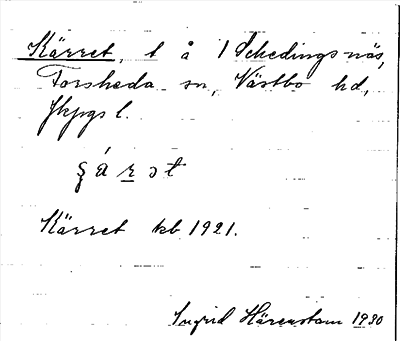 Kärret, t å 1 Schedingsnäs,
Forsheda sn, Västbo hd,
Jkpgs l.
Kärret kb 1921.
Ingrid Härenstam 1930